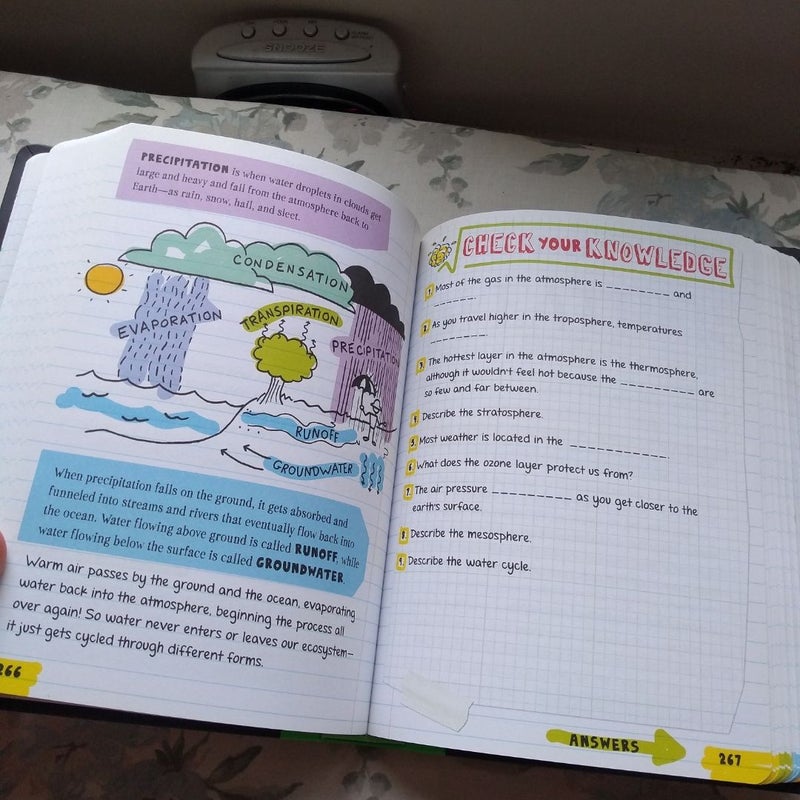 SNOOZE
PRECIPITATION is when water droplets in clouds get
large and heavy and fall from the atmosphere back to
Earth—as rain, snow, hail, and sleet.
CONDENSATION
EVAPORATION
TRANSPIRATION
PRECIPITATION
RUNOFF
GROUNDWATER
When precipitation falls on the ground, it gets absorbed and
funneled into streams and rivers that eventually flow back into
the ocean. Water flowing above ground is called RUNOFF, while
water flowing below the surface is called GROUNDWATER.
Warm air passes by the ground and the ocean, evaporating
water back into the atmosphere, beginning the process all
over again! So water never enters or leaves our ecosystem—
it just gets cycled through different forms.
266
CHECK YOUR KNOWLEDGE
1. Most of the gas in the atmosphere is _________ and
_______.
2. As you travel higher in the troposphere, temperatures
_________.
3. The hottest layer in the atmosphere is the thermosphere,
although it wouldn't feel hot because the __________ are
so few and far between.
4. Describe the stratosphere.
5. Most weather is located in the ____________.
6. What does the ozone layer protect us from?
7. The air pressure __________ as you get closer to the
earth's surface.
8. Describe the mesosphere.
9. Describe the water cycle.
ANSWERS
267